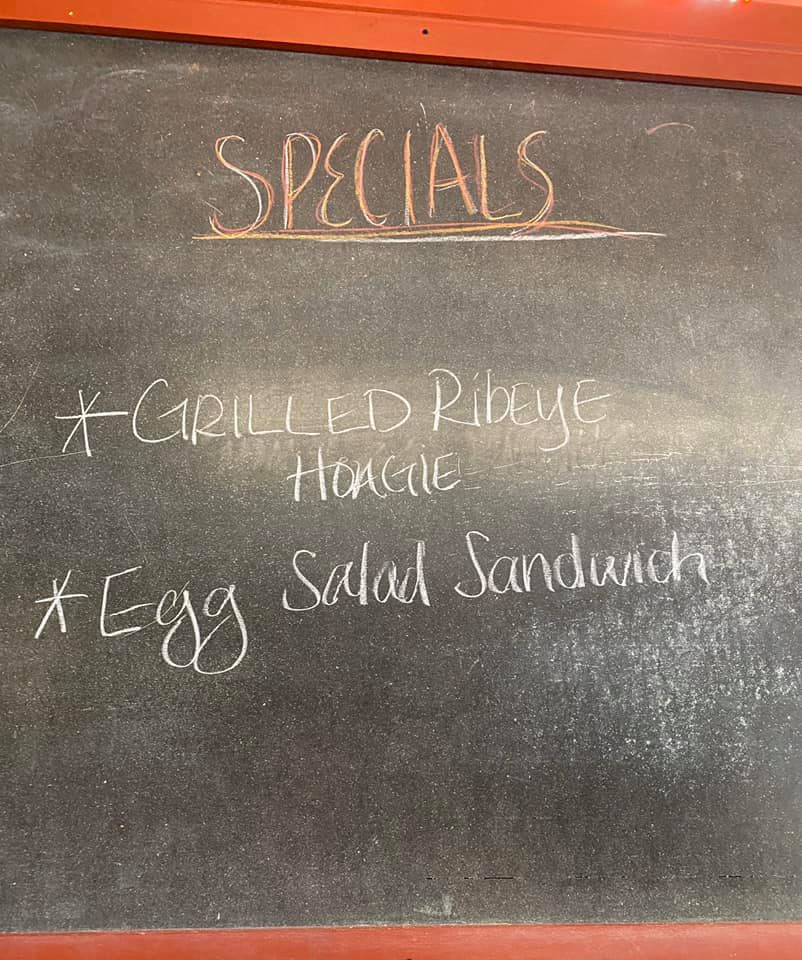 SPECIALS
* GRILLED RibEyE
HOAGIE
* Egg Salad Sandwich